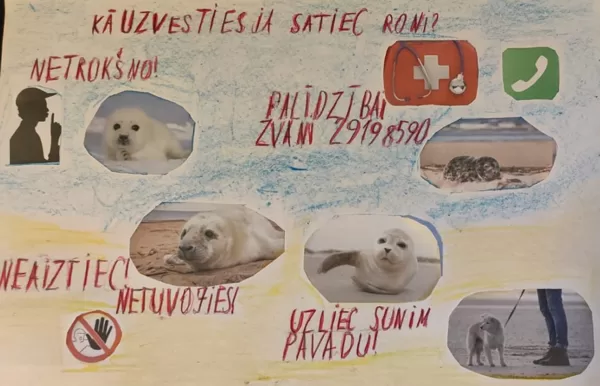 KĀ UZVESTIES JA SATIEC RONI?
NETROKŠŅO!
PALĪDZĪBAI
ZVANI 29198590
NEAIZTIEC!
NETUVOJIES!
UZLIEC SUNIM
PAVADU!